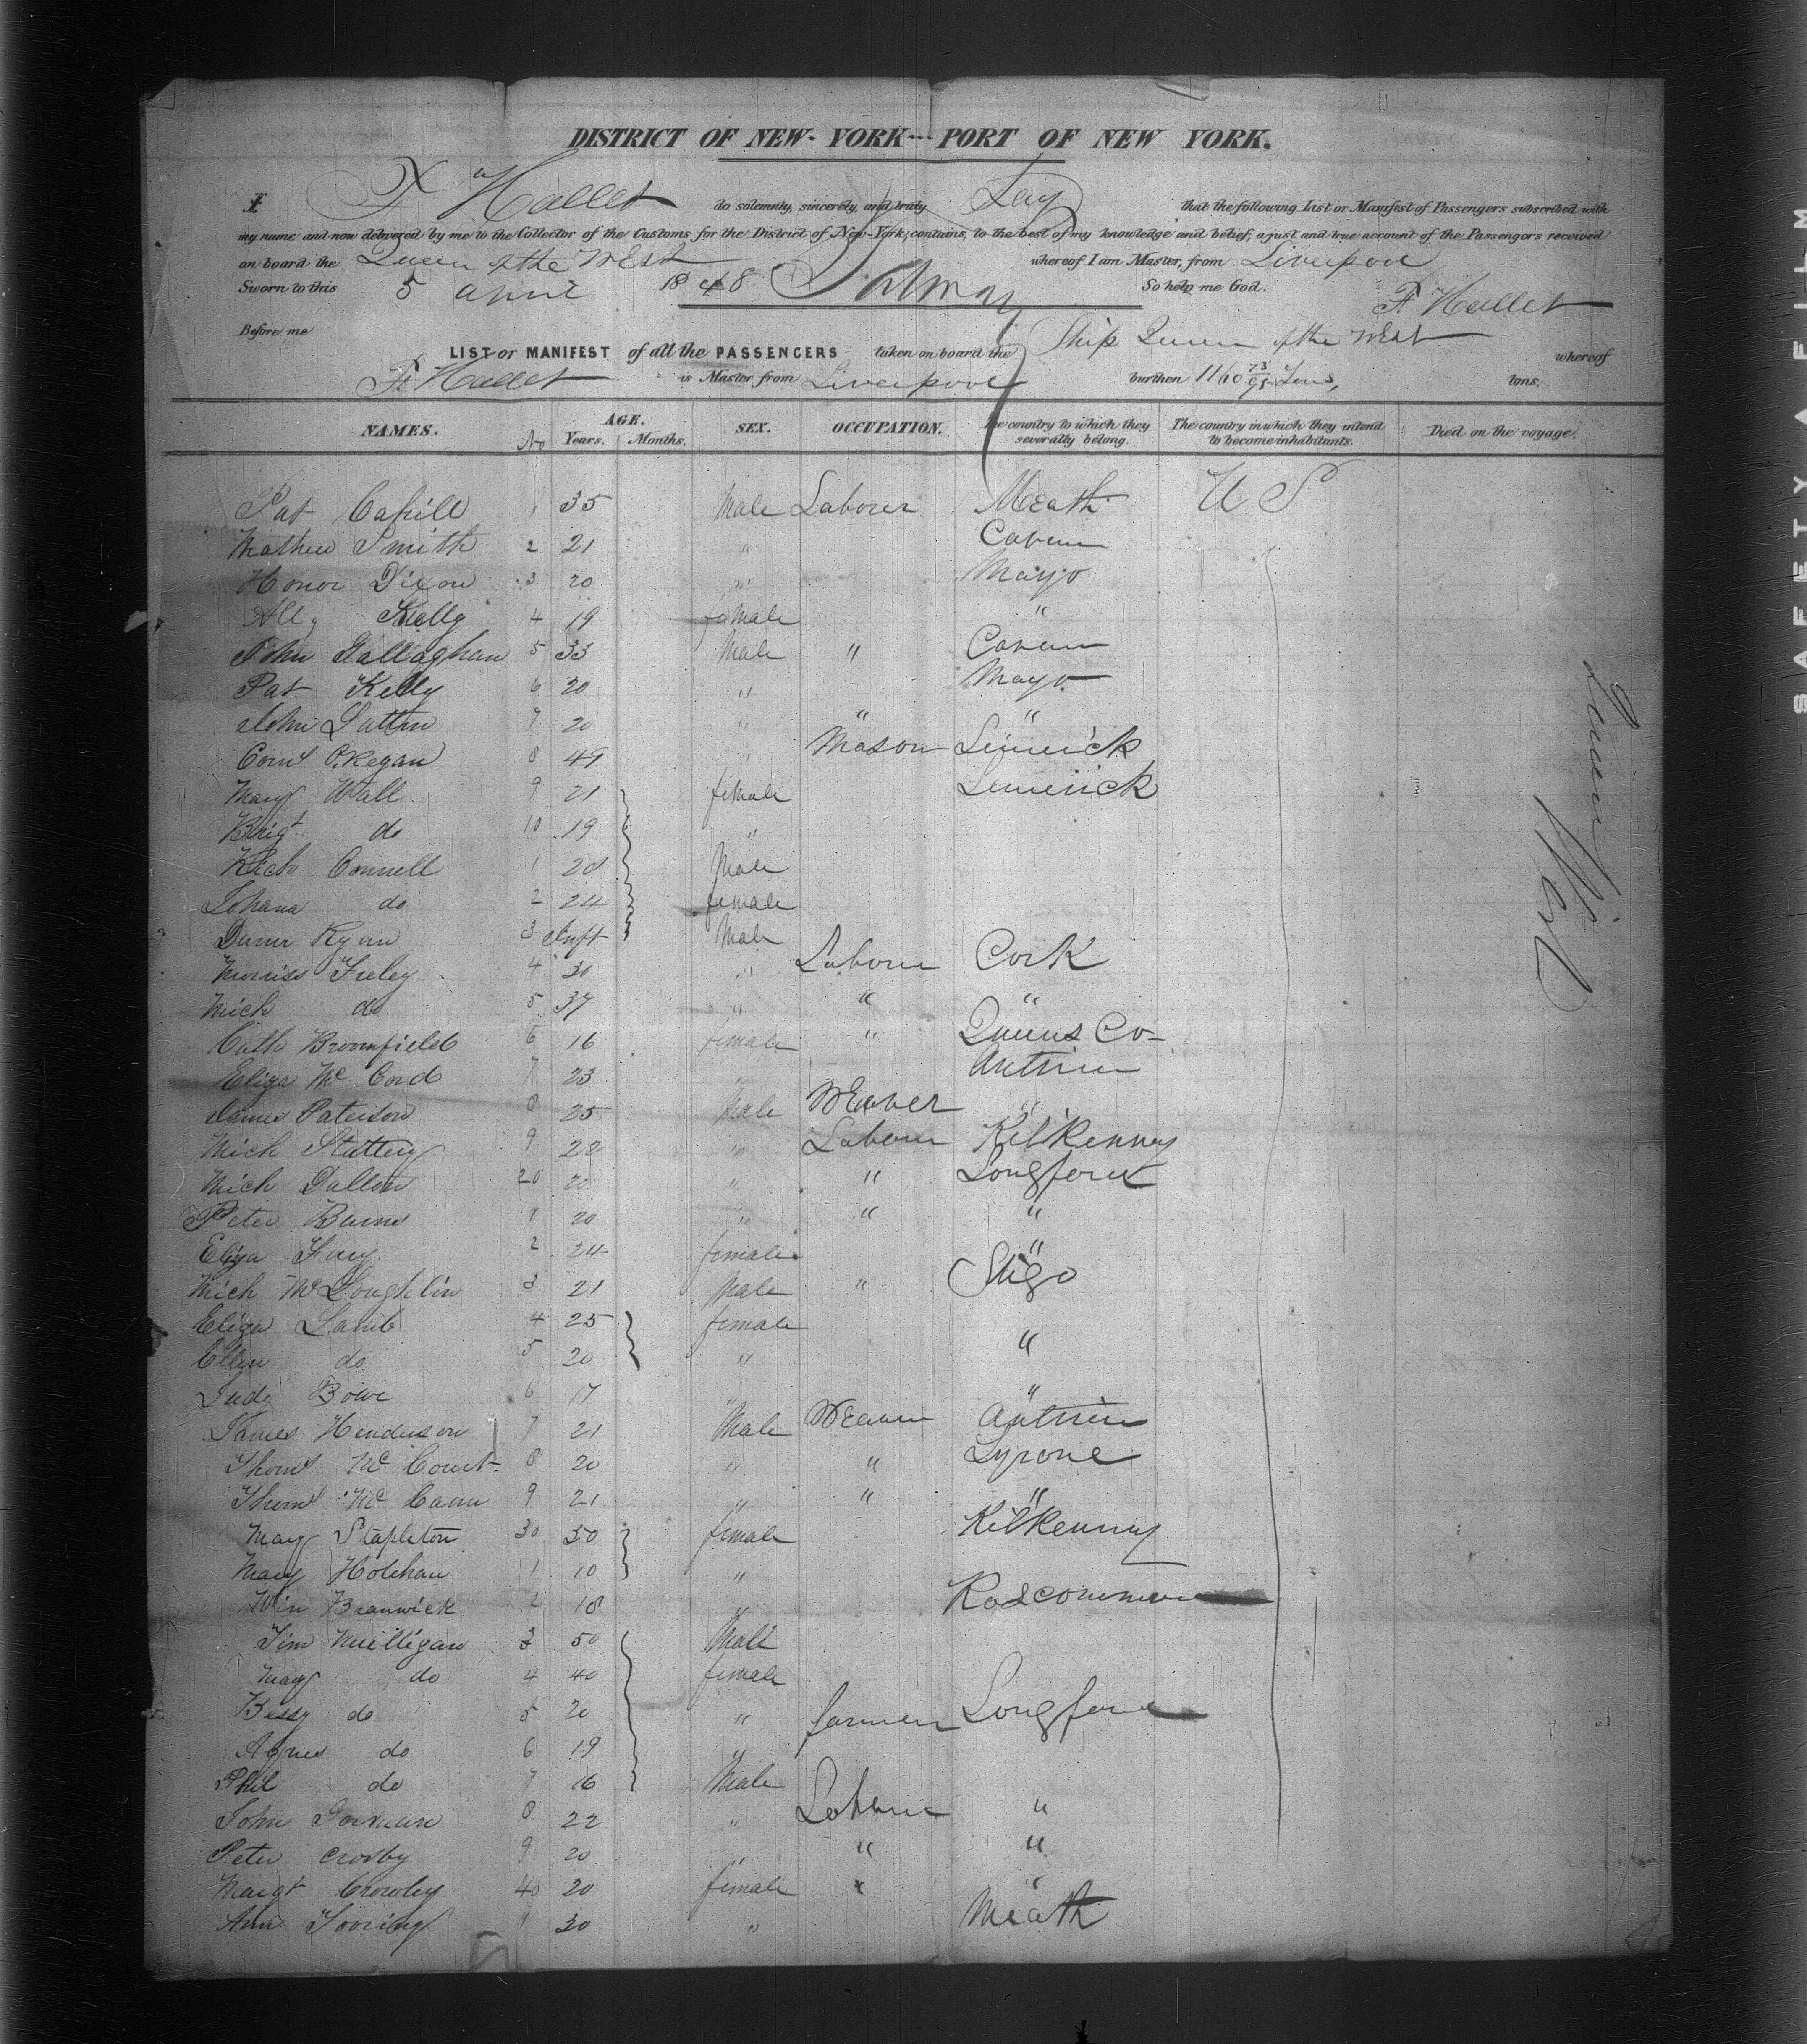 DISTRICT OF NEW-YORK---PORT OF NEW YORK.
I F Hallet do solemnly, sincerely, and truly Say that the following List or Manifest of Passengers subscribed with
my name and now delivered by me to the Collector of the Customs for the District of New-York, contains, to the best of my knowledge and belief, a just and true account of the Passengers received
on board the Queen of the West whereof I am Master, from Liverpool
Sworn to this 5 April 1848 So help me God. F Hallet
Before me
LIST or MANIFEST of all the PASSENGERS taken on board the Ship Queen of the West whereof
F Hallet is Master from Liverpool burthen 1160 73/95 Tons, tons.
NAMES. No AGE. Years. Months. SEX. OCCUPATION. The country to which they severally belong. The country in which they intend to become inhabitants. Died on the voyage.
Pat Cahill 1 35 Male Laborer Meath U S
Mathew Smith 2 21 " Cavan
Honor Dixon 3 20 " Mayo
Ally Kelly 4 19 female "
John Gallaghan 5 33 Male " Cavan
Pat Kelly 6 20 " Mayo
John 7 20 " " "
Corns O'Regan 8 49 " Mason Limerick
Mary Wall 9 21 female Limerick
Brigt do 10 19 "
Rich Connell 1 20 Male
Johana do 2 24 female
Ryan 3 Inft Male
Morriss 4 30 " Laborer Cork
Mich do 5 37 " " "
Cath Broomfield 6 16 female " Queens Co
Eliza McCord 7 23 " Antrim
James Paterson 8 25 Male Weaver "
Mich Slattery 9 22 " Laborer Kilkenny
Mich Dallon 20 20 " " Longford
Peter Burns 1 20 " " "
Eliza 2 24 female "
Mich McLoughlin 3 21 Male " Sligo
Eliza Lamb 4 25 female
Ellen do 5 20 " "
Judy Bowe 6 17 " "
James Henderson 7 21 Male Weaver Antrim
Thoms McCourt 8 20 " " Tyrone
Thoms McCann 9 21 " " "
Mary Stapleton 30 50 female Kilkenny
Mary Holehan 1 10 "
Win Branwick 2 18 " Roscommon
Tim Milligan 3 50 Male
Mary do 4 40 female
Bessy do 5 20 " farmer Longford
Agnes do 6 19 "
Phil do 7 16 Male
John Gorman 8 22 " Laborer "
Peter Crosby 9 20 " " "
Margt Crowley 40 20 female "
Ann 1 30 " Meath
SAFETY FILM